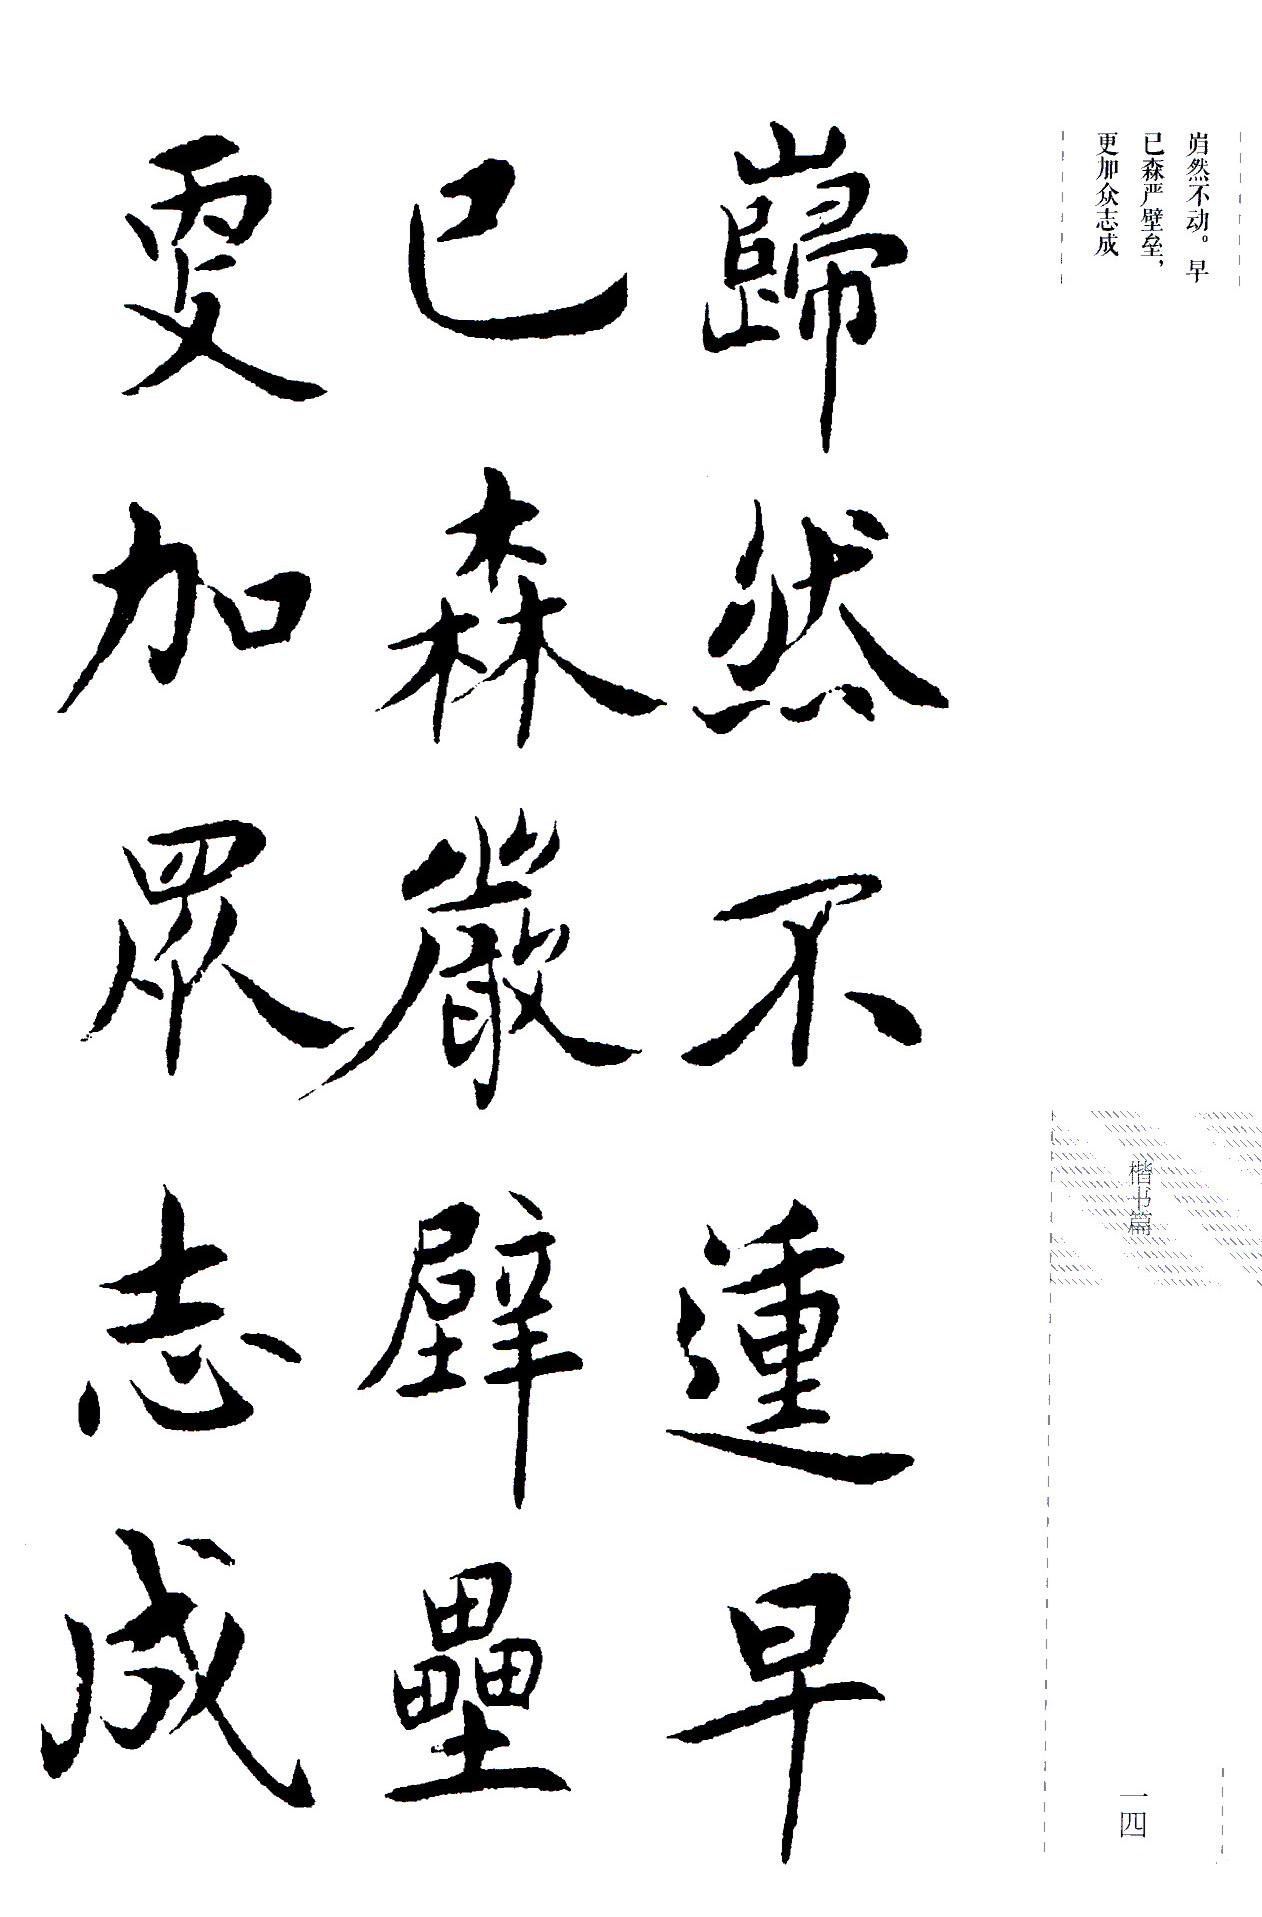 岿然不动。早
已森严壁垒，
更加众志成
楷书篇
一四
巋然不𨔝早
已森嚴壁壘
更加眾志成